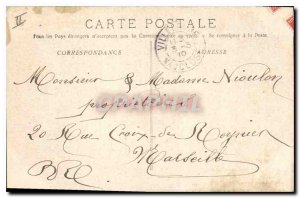 CARTE POSTALE
Tous les Pays étrangers n'acceptent pas la Correspondance au recto. - Se renseigner à la Poste.
CORRESPONDANCE
ADRESSE
Monsieur & Madame Nioulon
propriétaires
20 Rue Croix du Reynier
Marseille